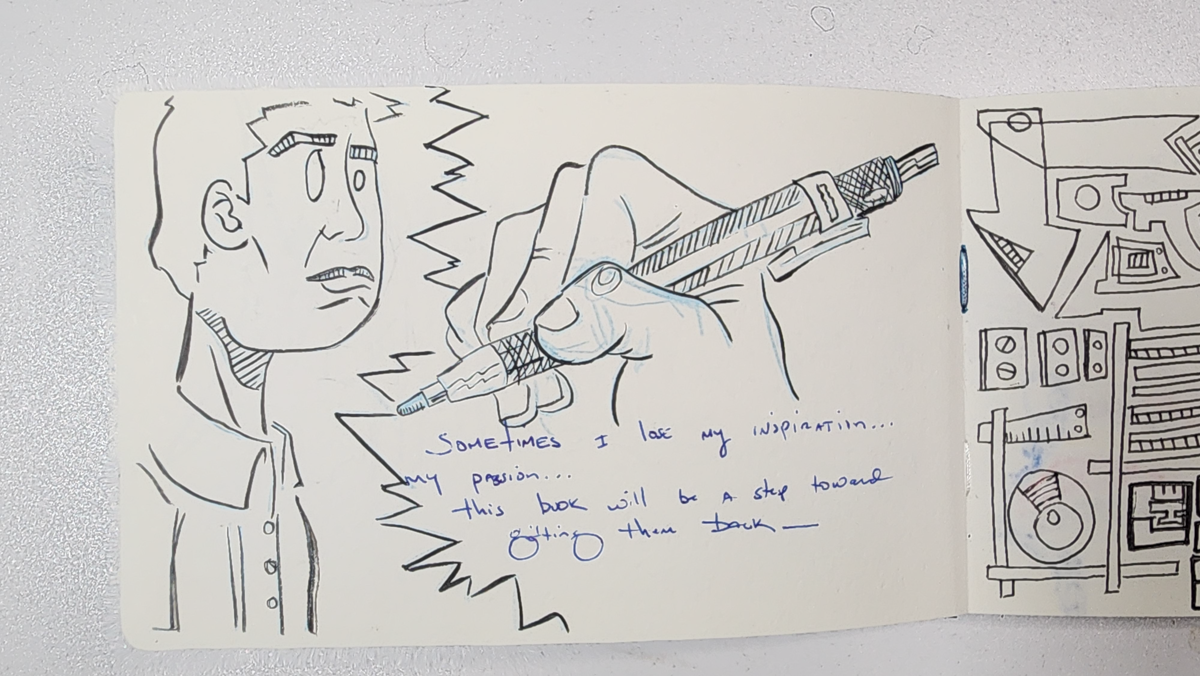 SOMETIMES I lose MY INSPIRATION...
MY passion...
this book will be A step toward
getting them back—